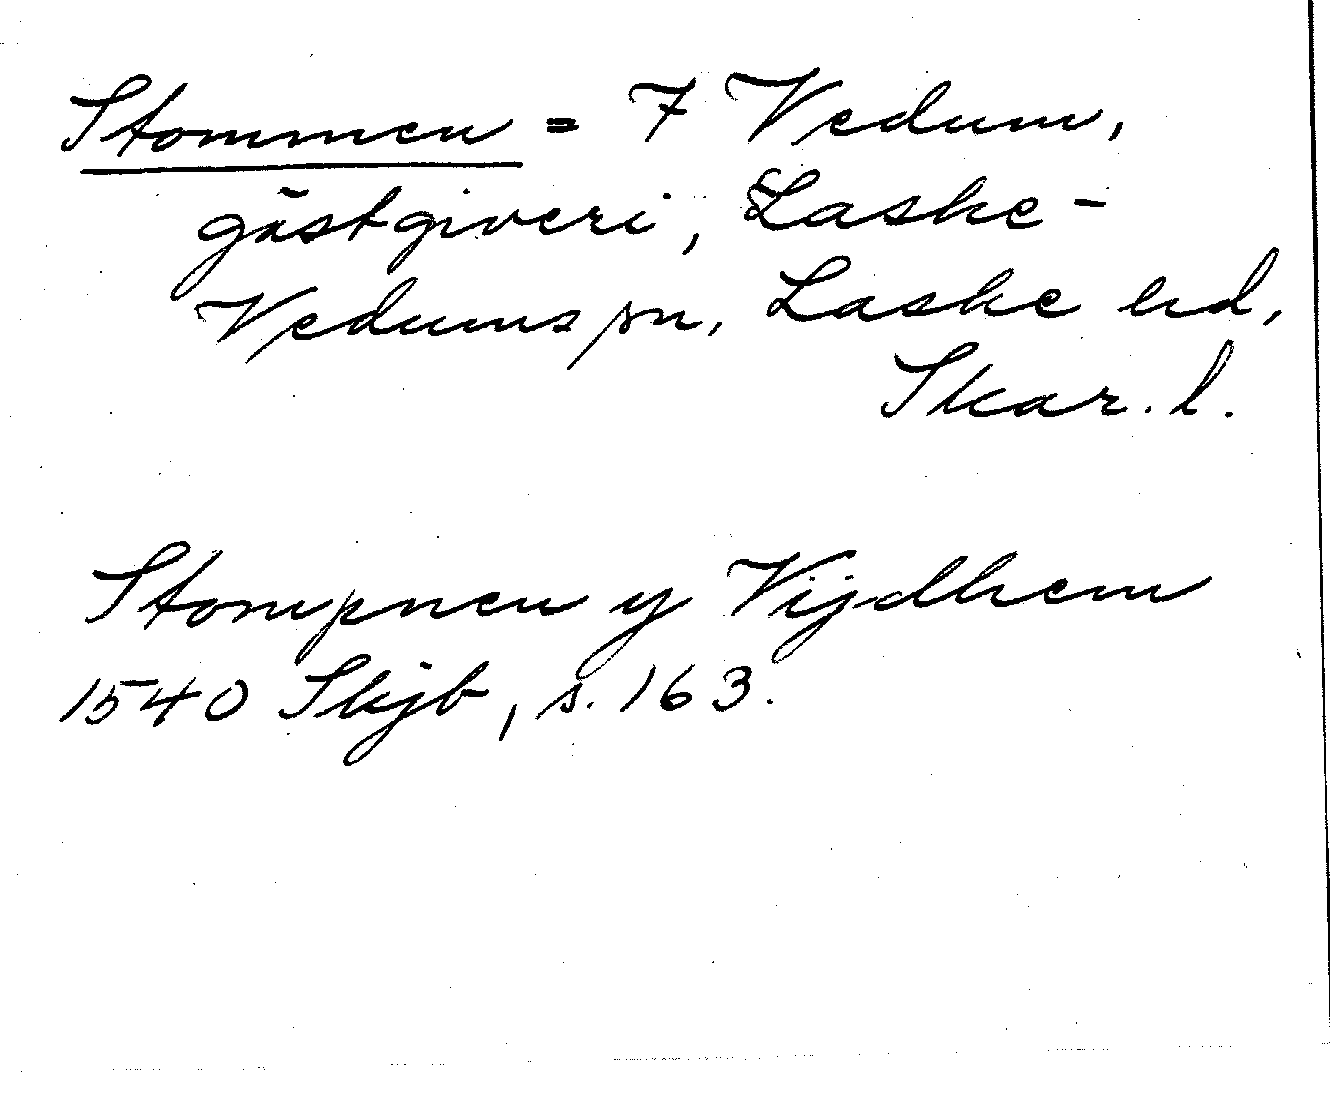 Stommen = 7 Vedum,
gästgiveri, Laske-
Vedums sn, Laske hd,
Skar. l.
Stompnen y Vijdhem
1540 Skjb, s. 163.